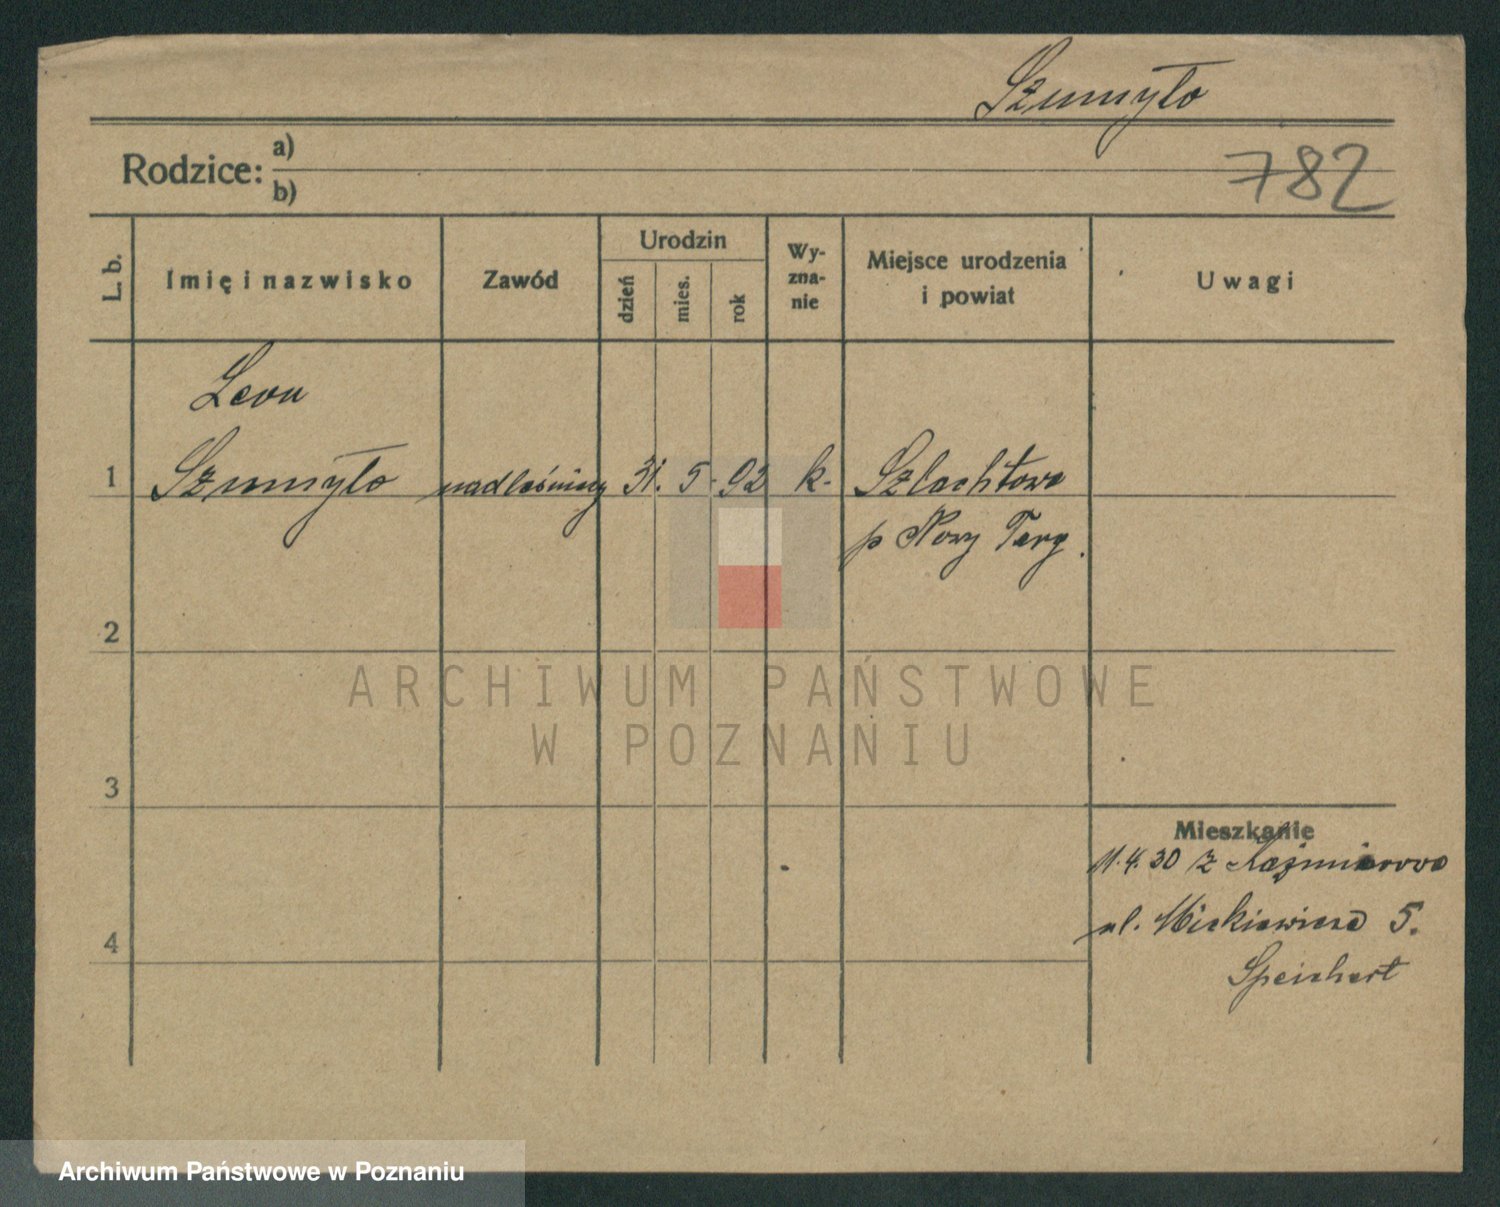 Szumyło
Rodzice: a)
b)
782
L. b.
Imię i nazwisko
Zawód
Urodzin
dzień
mies.
rok
Wy-
zna-
nie
Miejsce urodzenia
i powiat
Uwagi
Leon
1 Szumyło nadleśniczy 31. 5. 92 k. Szlachtowa
p Nowy Targ.
2
ARCHIWUM PAŃSTWOWE
W POZNANIU
3
Mieszkanie
11.4.30 z Kaźmierowa
4
ul. Mickiewicza 5.
Speichert
Archiwum Państwowe w Poznaniu